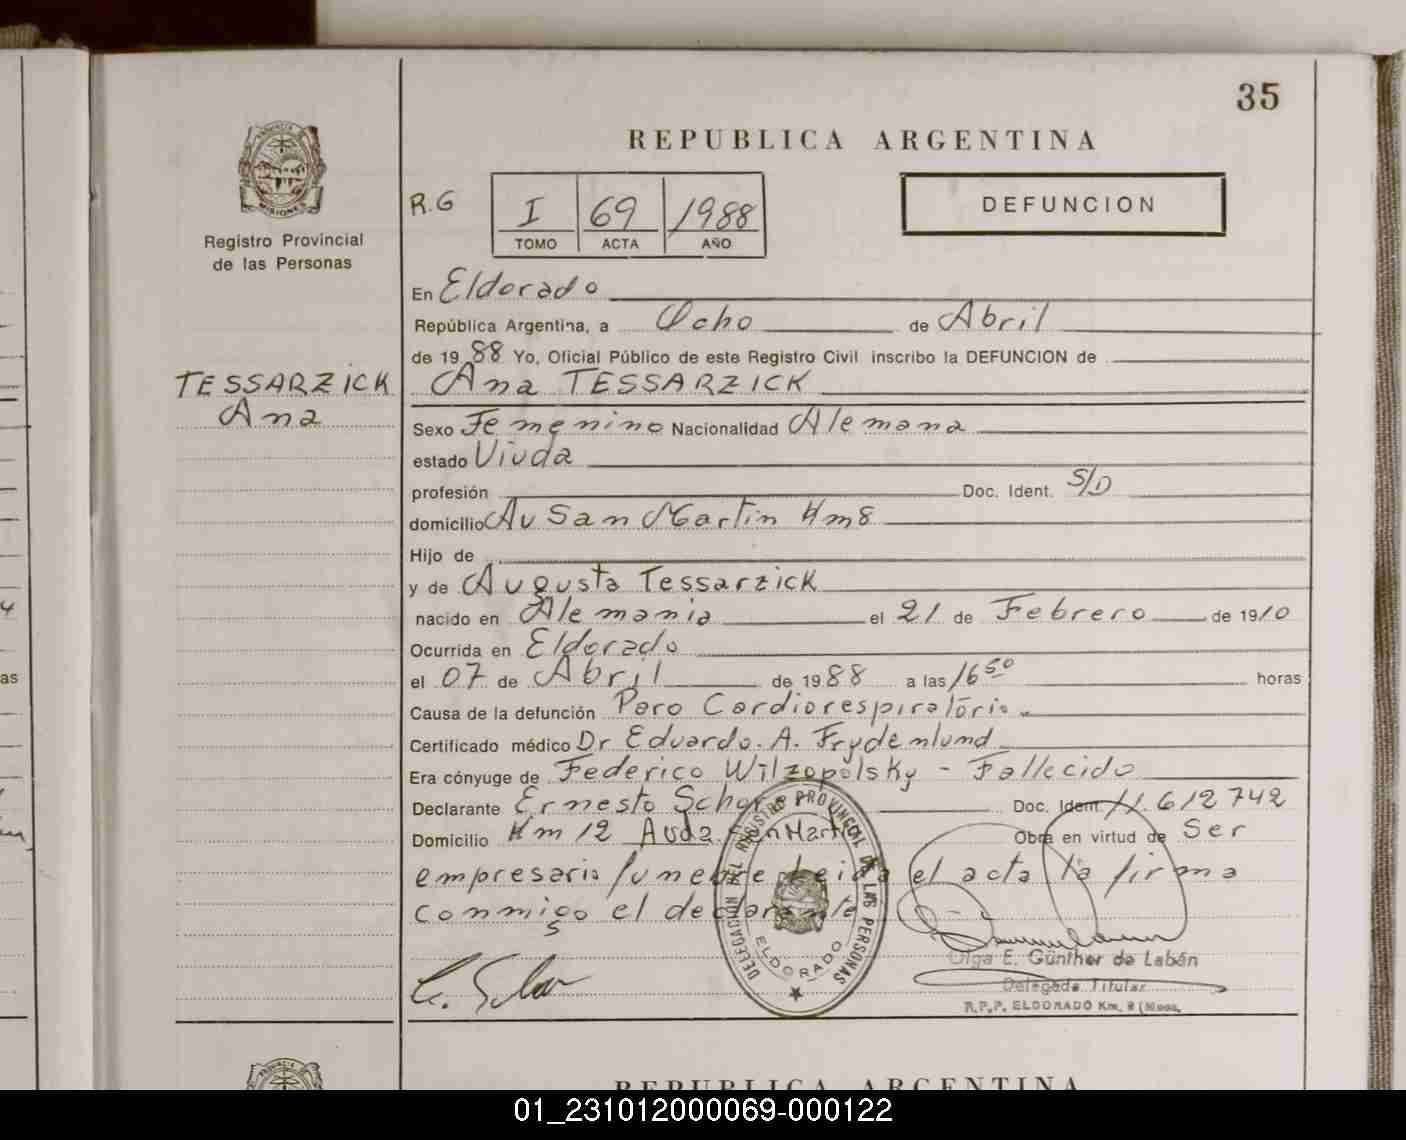 35
REPUBLICA ARGENTINA
PROVINCIA DE
MISIONES
Registro Provincial
de las Personas
R.G
I 69 1988
TOMO ACTA AÑO
DEFUNCION
En Eldorado
República Argentina, a Ocho de Abril
de 1988 Yo, Oficial Público de este Registro Civil inscribo la DEFUNCION de
TESSARZICK
Ana
Ana TESSARZICK
Sexo Femenino Nacionalidad Alemana
estado Viuda
profesión Doc. Ident. S/D
domicilio Av San Martin Km8
Hijo de
y de Augusta Tessarzick
nacido en Alemania el 21 de Febrero de 1910
Ocurrida en Eldorado
el 07 de Abril de 1988 a las 16 50 horas
Causa de la defunción Paro Cardiorespiratório
Certificado médico Dr Eduardo. A. Frydenlund
Era cónyuge de Federico Wilzopolsky - Fallecido
Declarante Ernesto Doc. Ident. 11.612742
Domicilio Km 12 Avda San Martin Obra en virtud de Ser
empresario funebre Leida el acta la firma
conmigo el declarante
DELEGACION DEL REGISTRO PROVINCIAL DE LAS PERSONAS
ELDORADO
Olga E. Günther de Labán
Delegada Titular
R.P.P. ELDORADO Km.
REPUBLICA ARGENTINA
01_231012000069-000122